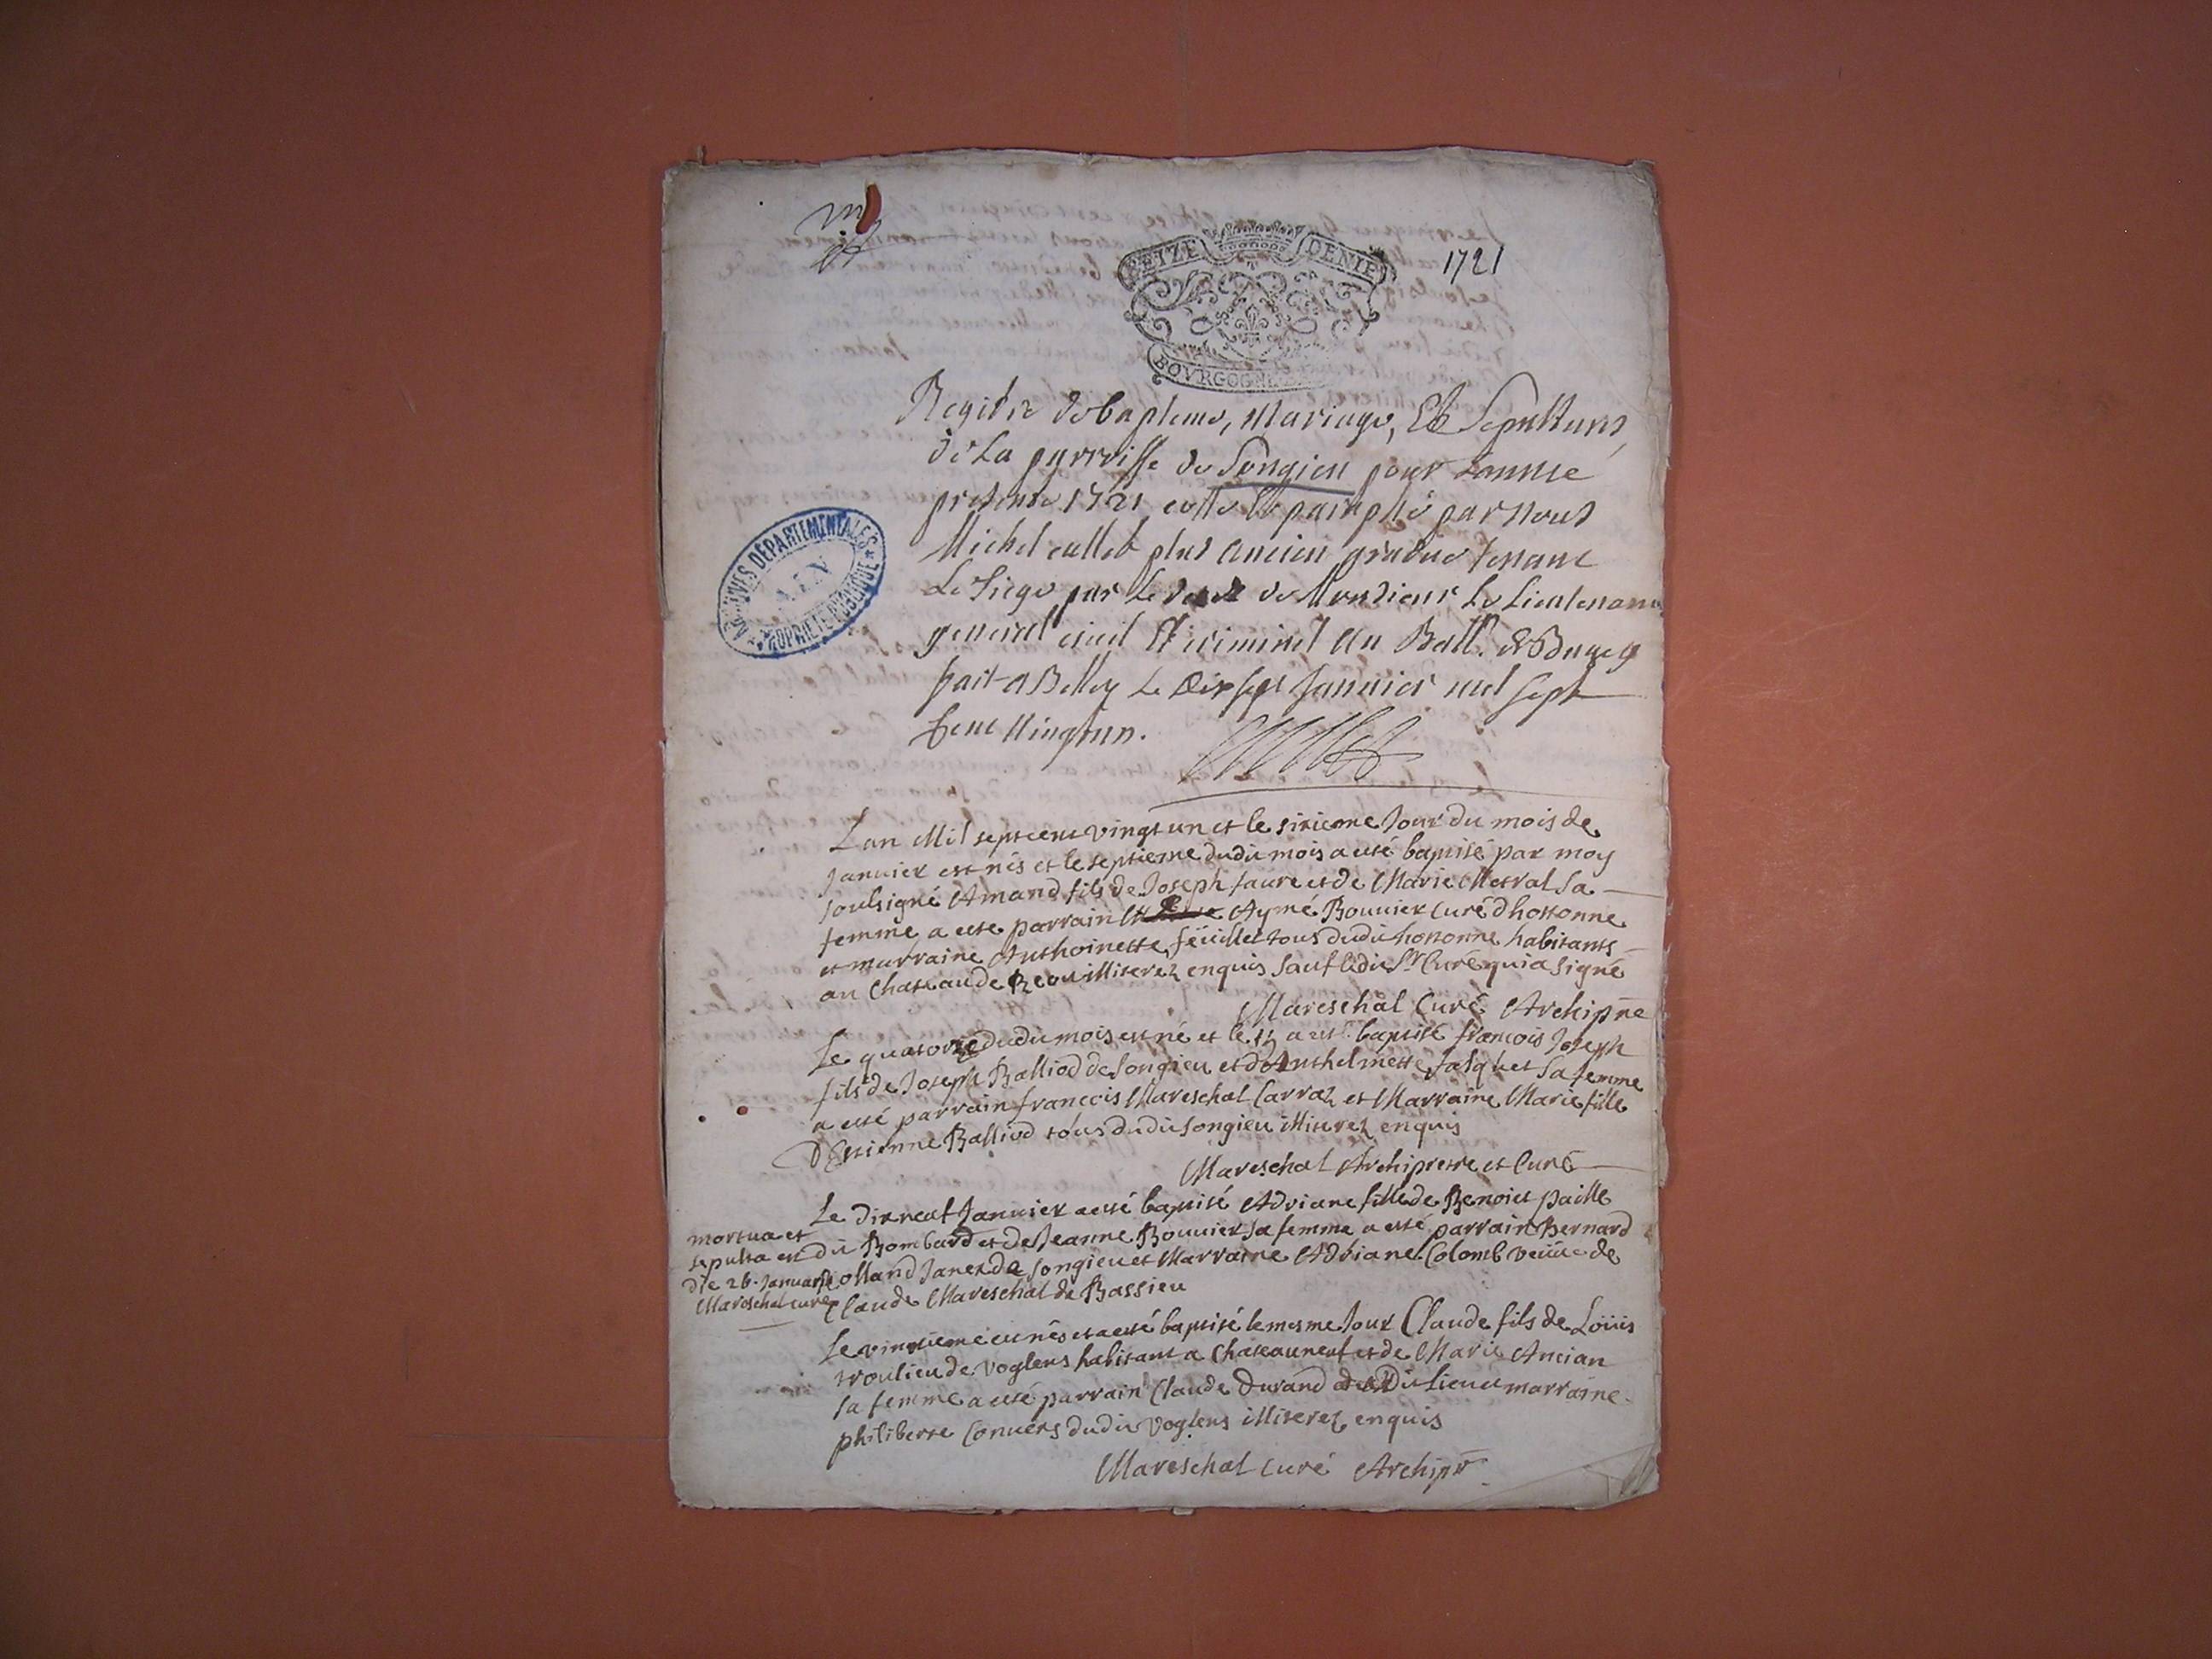 SEIZE DENIERS
1721
BOVRGOGNE
Registre de baptesme, Mariage, Et Sepultures
de La parroisse de Songieu pour Lannée
presente 1721 cotté Et paraphé par Nous
Michel cullet plus ancien gradué tenant
Le Siege par Le de Monsieur Le Lieutenant
general civil Et criminel au Baill. de Bugey
fait a Belley Le dix sept Janvier mil sept
Cent Vingt un.
Cullet
ARCHIVES DÉPARTEMENTALES
AIN
PROPRIÉTÉ PUBLIQUE
Lan Mil sept cent vingt un et le sixieme Jour du mois de
Janvier est nés et le septieme dudit mois a esté baptisé par moy
soulsigné Amand fils de Joseph faure et de Marie Metral sa
femme a este parrain Aymé Bouvier Curé dhostonne
et marraine Anthoinette feüillet tous dudit hostonne habitants
au Chateau de illiterez enquis sauf ledit Sr Curé qui a signé
Mareschal Curé Archipre
Le quatorze dudit mois est né et le a esté baptisé francois Joseph
fils de Joseph Balliod de Songieu et dAnthelmette Jasquet sa femme
a esté parrain francois Mareschal Carraz et Marraine Marie fille
DEstienne Balliod tous dudit songieu illiterez enquis
Mareschal Archiprestre et Curé
Le dixneuf Janvier a esté baptisé Adriane fille de Benoict paille
dit Bombard et de Jeanne Bouvier sa femme a esté parrain Bernard
Janex de songieu et Marraine Adriane Colomb veüue de
Claude Mareschal de Bassieu
mortua et
sepulta est
die 26. Januarii
Mareschal curé
Le vingtieme est nés et a esté baptisé le mesme Jour Claude fils de Loüis
troulieu de voglens habitant a Chateauneuf et de Marie Ancian
sa femme a esté parrain Claude Durand dudit Lieu et marraine
philiberte Convers dudit voglens illiterez enquis
Mareschal curé Archipr